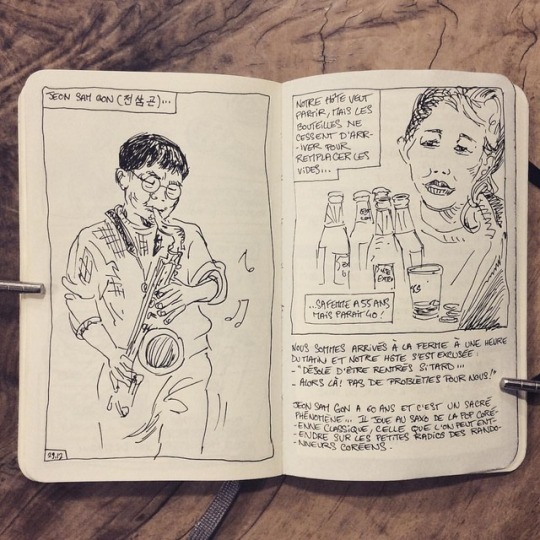 JEON SAM GON (전삼곤)...
29.12
NOTRE HÔTE VEUT
PARTIR, MAIS LES
BOUTEILLES NE
CESSENT D'ARR-
-IVER POUR
REMPLACER LES
VIDES...
...SA FEMME A 55 ANS
MAIS PARAÎT 40!
NOUS SOMMES ARRIVÉS À LA FERME À UNE HEURE
DU MATIN ET NOTRE HÔTE S'EST EXCUSÉE :
-"DÉSOLÉ D'ÊTRE RENTRÉS SI TARD...
- ALORS LÀ! PAS DE PROBLÈMES POUR NOUS!"
JEON SAM GON A 60 ANS ET C'EST UN SACRÉ
PHÉNOMÈNE... IL JOUE AU SAXO DE LA POP CORÉ-
-ENNE CLASSIQUE, CELLE QUE L'ON PEUT ENT-
-ENDRE SUR LES PETITES RADIOS DES RANDO-
-NNEURS CORÉENS.